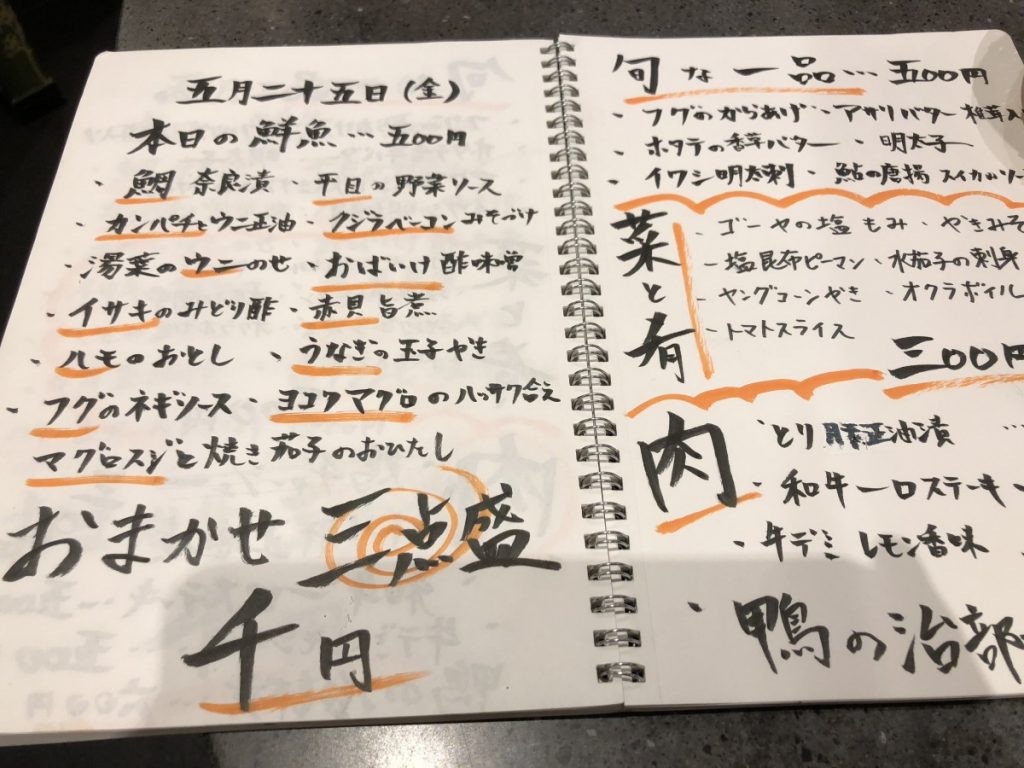 五月二十五日(金)
本日の鮮魚… 五00円
・鯛 奈良漬 ・平目の野菜ソース
・カンパチとウニ正油 ・クジラベーコン みそづけ
・湯葉のウニのせ ・おばいけ 酢味噌
・イサキのみどり酢 ・赤貝 旨煮
・ハモのおとし ・うなぎの玉子やき
・フグのネギソース ・ヨコワマグロのハッサク合え
マグロスジと焼き茄子のおひたし
おまかせ 三点盛
千円
旬な一品… 五00円
・フグのからあげ ・アサリバター
・ホタテの香草バター ・明太子
・イワシ明太刺 ・鮎の唐揚 スイカのソー
菜と肴
・ゴーヤの塩もみ ・やきみそ
・塩昆布ピーマン ・水茄子の刺身
・ヤングコーンやき ・オクラボイル
・トマトスライス
三00円
肉
とり 正油漬 …
・和牛一口ステーキ
・牛デミ レモン香味
・鴨の治部